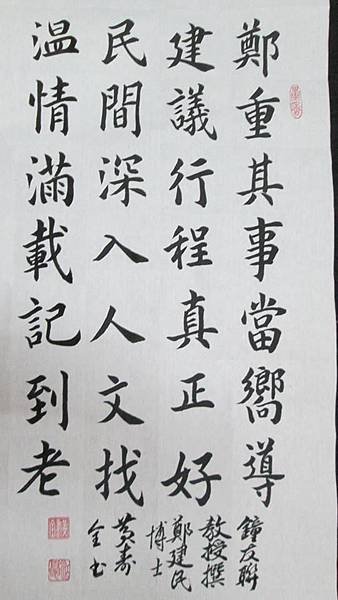 鄭重其事當嚮導
建議行程真正好
民間深入人文找
温情滿載記到老
鐘友聯
教授撰
鄭建民
博士
黄壽
全书